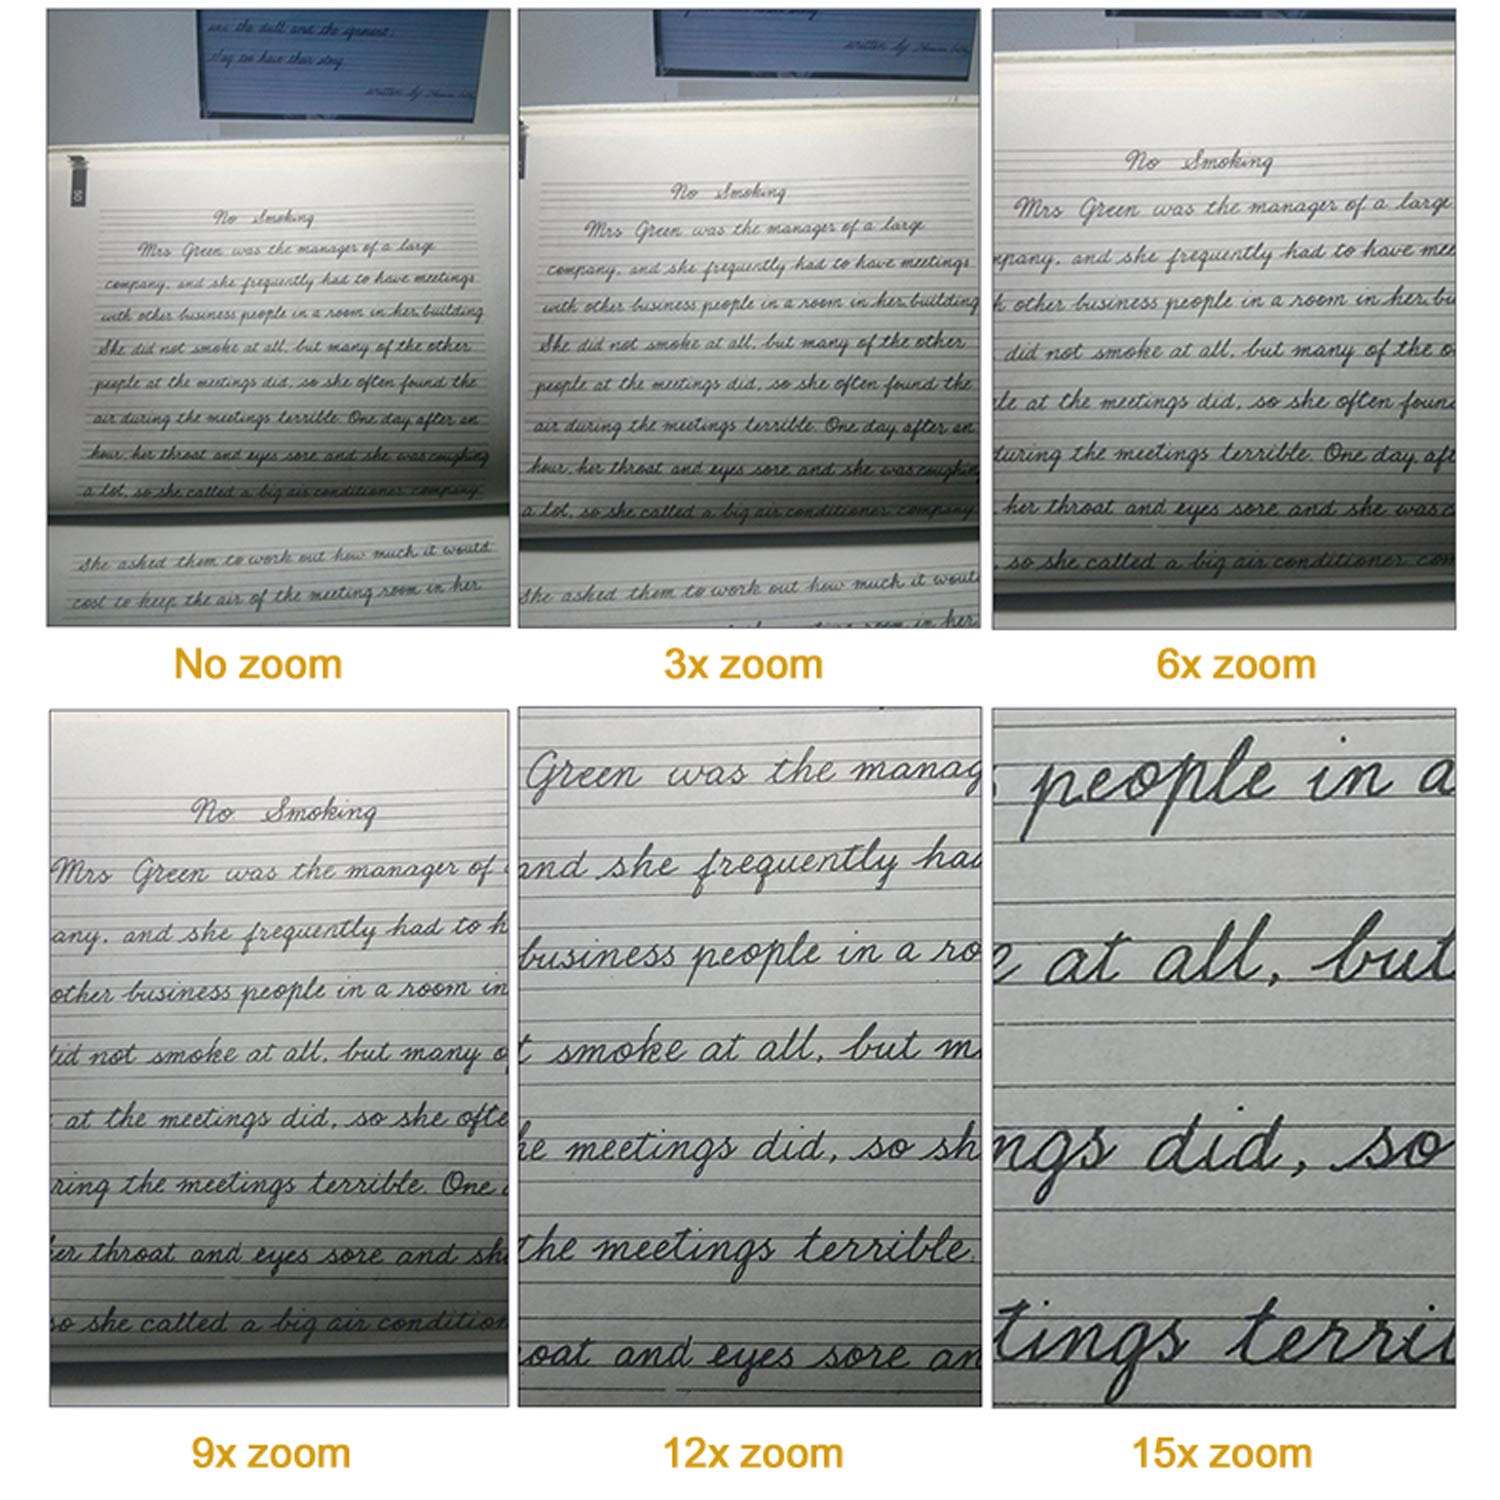 are the dull and the ignorant;
they too have their story.
written by
50
No Smoking
Mrs Green was the manager of a large
company, and she frequently had to have meetings
with other business people in a room in her building
She did not smoke at all, but many of the other
people at the meetings did, so she often found the
air during the meetings terrible. One day after an
hour, her throat and eyes sore and she was coughing
a lot, so she called a big air conditioner company
She asked them to work out how much it would
cost to keep the air of the meeting room in her
No zoom
written by
No Smoking
Mrs Green was the manager of a large
company, and she frequently had to have meetings
with other business people in a room in her building
She did not smoke at all, but many of the other
people at the meetings did, so she often found the
air during the meetings terrible. One day after an
hour, her throat and eyes sore and she was coughing
a lot, so she called a big air conditioner company
She asked them to work out how much it would
room in her
3x zoom
No Smoking
Mrs Green was the manager of a large
mpany, and she frequently had to have mee
h other business people in a room in her bu
did not smoke at all, but many of the o
le at the meetings did, so she often foun
during the meetings terrible. One day aft
her throat and eyes sore and she was c
, so she called a big air conditioner com
6x zoom
No Smoking
Mrs Green was the manager of
any, and she frequently had to h
other business people in a room in
did not smoke at all, but many of
at the meetings did, so she ofte
ring the meetings terrible. One
her throat and eyes sore and she
so she called a big air condition
9x zoom
Green was the manag
and she frequently had
business people in a ro
t smoke at all, but m
he meetings did, so sh
the meetings terrible.
oat and eyes sore an
12x zoom
people in a
e at all, but
ngs did, so
tings terri
15x zoom